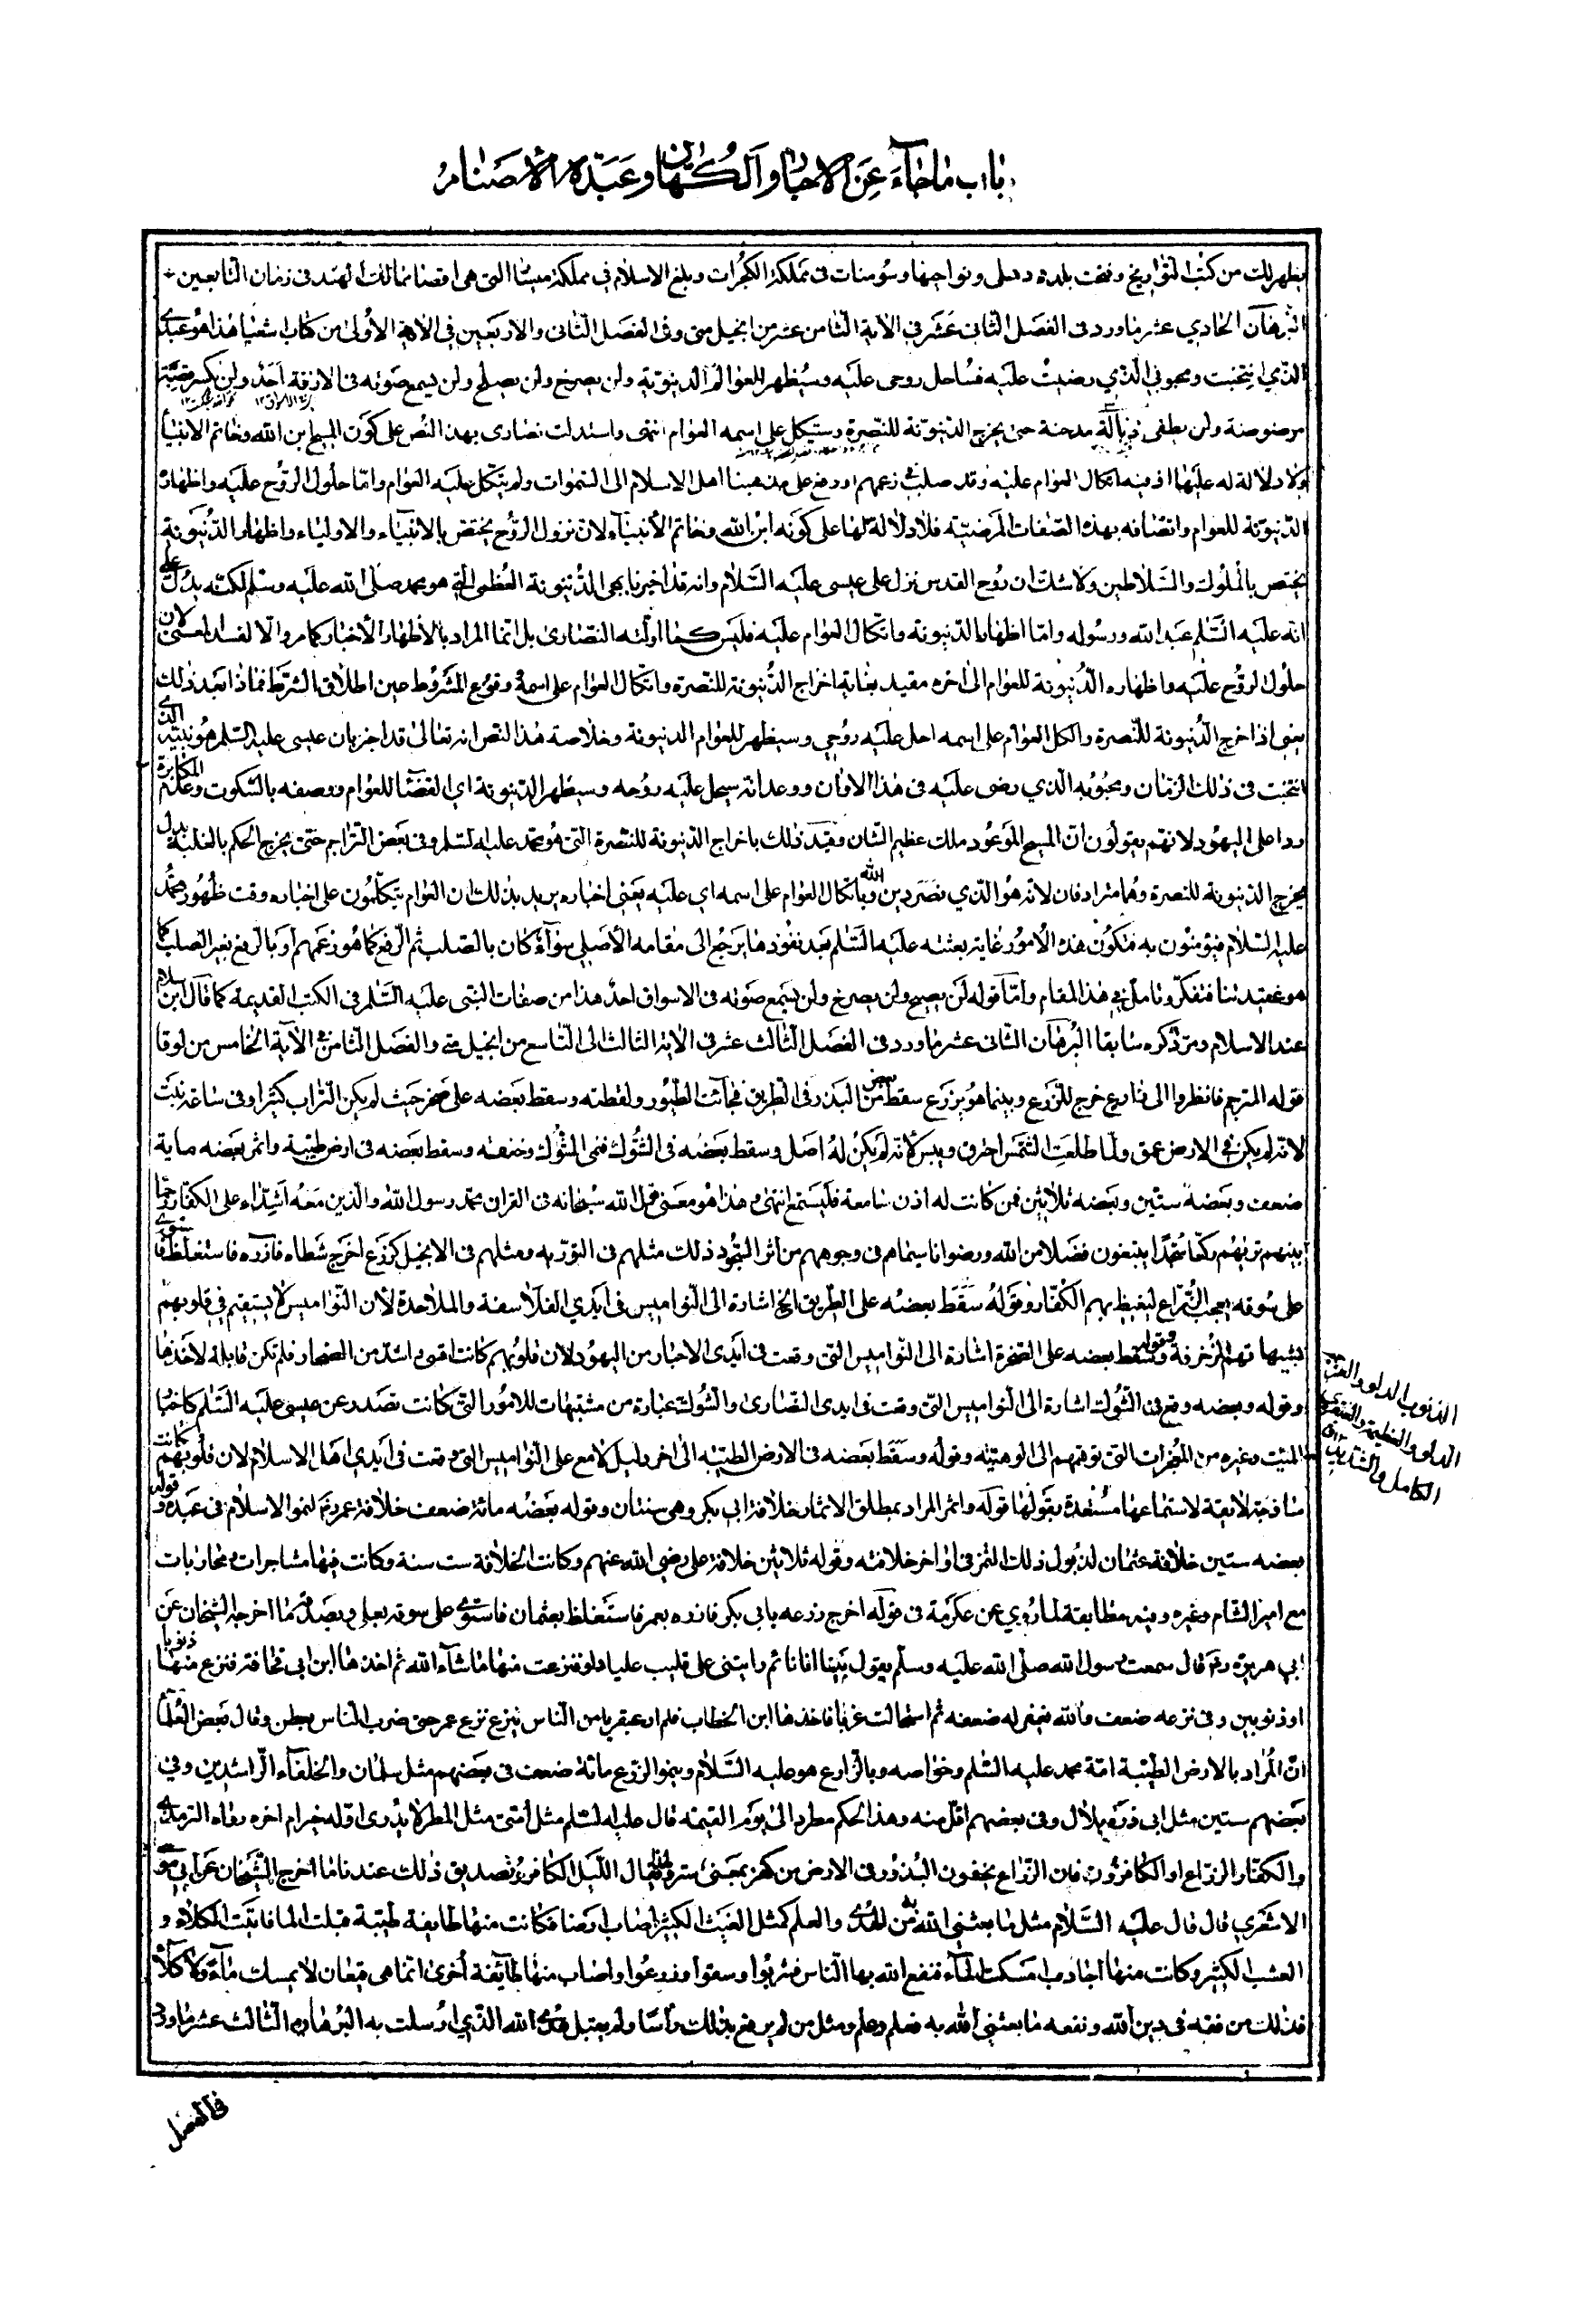 باب ما جاء عن الاحبار والكهان وعبدة الاصنام
يظهر لك من كتب التواريخ وفتحت بلدة دهلى ونواحيها وسومنات فى مملكة الكجرات وبلغ الاسلام فى مملكة التى هى اقصا ممالك الهند فى زمان التابعين
البرهان الحادي عشر ما ورد فى الفصل الثانى عشر فى الآية الثامن عشر من انجيل متى وفى الفصل الثانى والاربعين فى الآية الأولى من كتاب اشعيا هذا هو عبدى
الذي انتخبت ومحبوبي الذي رضيت عليه فساحل روحى عليه وسيُظهر للعوالم الدينونة ولن يصرخ ولن يصلح ولن يسمع صوته فى الازقة احد ولن يكسر قصبة
مرضوضة ولن يطفى ذبالة مدخنة حتى يخرج الدينونة للنصرة وستيكل على اسمه العوام انتهى واستدلت نصارى بهذ النص على كون المسيح ابن الله وخاتم الانبيا
ولا دلالة له عليها اذ فيه اتكال العوام عليه وقد صلب فى زعمهم او رفع على مذهبنا اهل الاسلام الى السموات ولم يتكل عليه العوام واما حلول الروح عليه واظهاره
الدينونة للعوام واتصافه بهذه الصفات المرضية فلا دلالة لها على كونه ابن الله وخاتم الأنبياء لان نزول الروح يختص بالانبياء والاولياء واظهار الدينونة
يختص بالملوك والسلاطين ولا شك ان روح القدس نزل على عيسى عليه السلام وانه قد اخبرنا بمجى الدينونة العظمى التى هو محمد صلى الله عليه وسلم لكنه يدل على
انه عليه السلم عبد الله ورسوله واما اظهار الدينونة واتكال العوام عليه فليس كما اولته النصارى بل انما المراد بالأظهار الأخبار كما مر والا لفسد المعنى لان
حلول الروح عليه واظهاره الدينونة للعوام الى اخره مقيد بغاية اخراج الدينونة للنصرة واتكال العوام على اسمه وقوع المشروط حين اطلاق الشرط فماذا بعد ذلك
يعنى اذا خرج الدينونة للنصرة واتكل العوام على اسمه احل عليه روحي وسيظهر للعوام الدينونة وخلاصة هذا النص انه تعالى قد اخبر بان عيسى عليه السلم هو نبيه الذى
انتخبت فى ذلك الزمان ومحبوبه الذي رضى عليه فى هذا الاوان ووعد انه سيحل عليه روحه وسيظهر الدينونة اي القضا للعوام ووصفه بالسكوت وعدم المكابرة
ردا على اليهود لانهم يقولون ان المسيح الموعود ملك عظيم الشان وقيد ذلك باخراج الدينونة للنصرة التى هو محمد عليه السلم وفى بعض التراجم حتى يخرج الحكم بالغلبة بدل
يخرج الدينونة للنصرة وهما مترادفان لانه هو الذي نصر دين الله وباتكال العوام على اسمه اي عليه يعنى اخباره يريد بذلك ان العوام يتكلمون على اخباره وقت ظهور محمد
عليه السلام فيؤمنون به فتكون هذه الأمور غاية بعثته عليه السلم بعد نفوذها يرجع الى مقامه الأصلي سوآء كان بالصلب ثم الرفع كما هو زعمهم او بالرفع بغير الصلب كما
هو عقيدتنا فتفكر وتامل فى هذا المقام واما قوله لن يصيح ولن يصرخ ولن يسمع صوته فى الاسواق احد هذا من صفات النبى عليه السلم فى الكتب القديمة كما قال ابن سلام
عند الاسلام ومر ذكره سابقا البرهان الثانى عشر ما ورد فى الفصل الثالث عشر فى الآية الثالث الى التاسع من انجيل متى والفصل الثامن فى الآية الخامس من لوقا
قوله المترجم فانظروا الى زارع خرج للزرع وبينما هو يزرع سقط بعض من البذر فى الطريق فجآئت الطيور ولقطته وسقط بعضه على صخر حيث لم يكن التراب كثيرا وفى ساعته نبت
لانه لم يكن فى الارض عمق ولما طلعت الشمس احترق ويبس لأنه لم يكن له اصل وسقط بعضه فى الشوك فنمى الشوك وخنقه وسقط بعضه فى ارض طيبة واثمر بعضه ماية
ضعف وبعضه ستين وبعضه ثلاثين فمن كانت له اذن سامعة فليستمع انتهى هذا هو معنى قول الله سبحانه فى القران محمد رسول الله والذين معه اشداء على الكفار رحما
بينهم تريهم ركعا سجدا يبتغون فضلا من الله ورضوانا سيماهم فى وجوههم من أثر السجود ذلك مثلهم فى التورية ومثلهم فى الانجيل كزرع اخرج شطاه فازره فاستغلظ فاستوى
على سوقه يعجب الزراع ليغيظ بهم الكفار وقوله سقط بعضه على الطريق الخ اشارة الى النواميس فى أيدي الفلاسفة والملاحدة لأن النواميس لا يستقيم فى قلوبهم
بشبهاتهم المزخرفة وقوله وسقط بعضه على الصخرة اشارة الى النواميس التى وقعت فى ايدى الاحبار من اليهود لان قلوبهم كانت اقسى واشد من الصخار فلم تكن قابلة لاخذها
وقوله وبعضه وقع فى الشوك اشارة الى النواميس التى وقعت فى ايدى النصارى والشوك عبارة من مشتبهات للامور التى كانت تصدر عن عيسى عليه السلم كاحيا
الميت وغيره من المعجزات التى توهمهم الى الوهيته وقوله وسقط بعضه فى الارض الطيبه الى اخر دليل لامع على النواميس التى وقعت فى أيدي اهل الاسلام لان قلوبهم كانت
سا ذجة لائقة لاستماعها مستعدة بقولها قوله واثمر المراد بمطلق الاثمار خلافة ابى بكر وهى سنتان وقوله بعضه مائة ضعف خلافة عمر رض لنمو الاسلام فى عهده وقوله
بعضه ستين خلافة عثمان لذبول ذلك الثمر فى اواخر خلافته وقوله ثلاثين خلافة على رضي الله عنهم وكانت الخلافة ست سنة وكانت فيها مشاجرات ومحاربات
مع امير الشام وغيره وفيه مطابقة لما روي عن عكرمة فى قوله اخرج زرعه بابي بكر فازره بعمر فاستغلظ بعثمان فاستوى على سوقه بعلى ويصدقه ما اخرجه الشيخان عن
ابي هريرة رض قال سمعت رسول الله صلى الله عليه وسلم يقول بينا انا نائم رايتنى على قليب عليها دلو فنزعت منها ما شآء الله ثم اخذها ابن ابى قحافة فنزع منها ذنوبا
او ذنوبين وفى نزعه ضعف والله يغفر له ضعفه ثم استحالت غربا فاخذها ابن الخطاب فلم ار عبقريا من الناس ينزع نزع عمر حتى ضرب الناس بعطن وقال بعض العلمآ
ان المراد بالارض الطيبة امة محمد عليه السلم وخواصه وبالزارع هو عليه السلام وبنمو الزرع مائة ضعف فى بعضهم مثل سلمان والخلفآء الراشدين وفي
بعضهم ستين مثل ابى ذر وبلال وفى بعضهم اقل منه وهذا الحكم مطرد الى يوم القيمة قال عليه السلم مثل أمتى مثل المطر لا يدرى اوله خير ام اخره رواه الترمذى
والكفار الزراع او الكافرون فان الزراع يخفون البذور فى الارض من كفر بمعنى ستر ولهذا يقال الليل الكافر وتصديق ذلك عندنا ما اخرج الشيخان عن ابى موسى
الاشعري قال قال عليه السلام مثل ما بعثنى الله به من الهدى والعلم كمثل الغيث الكثير اصاب ارضا فكانت منها طايفة طيبة قبلت الما فانبتت الكلاء و
العشب الكثير وكانت منها اجادب امسكت المآء فنفع الله بها الناس فشربوا وسقوا وزرعوا واصاب منها طائفة أخرى انما هى قيعان لا يمسك مآء ولا كلأ
فذلك من فقه فى دين الله ونفعه ما بعثنى الله به فعلم وعلم ومثل من لم يرفع بذلك رأسا ولم يقبل هدى الله الذي ارسلت به البرهان الثالث عشر ما ورد
الذنوب الدلو
الدلو العظيمة
الكامل
فى الفصل